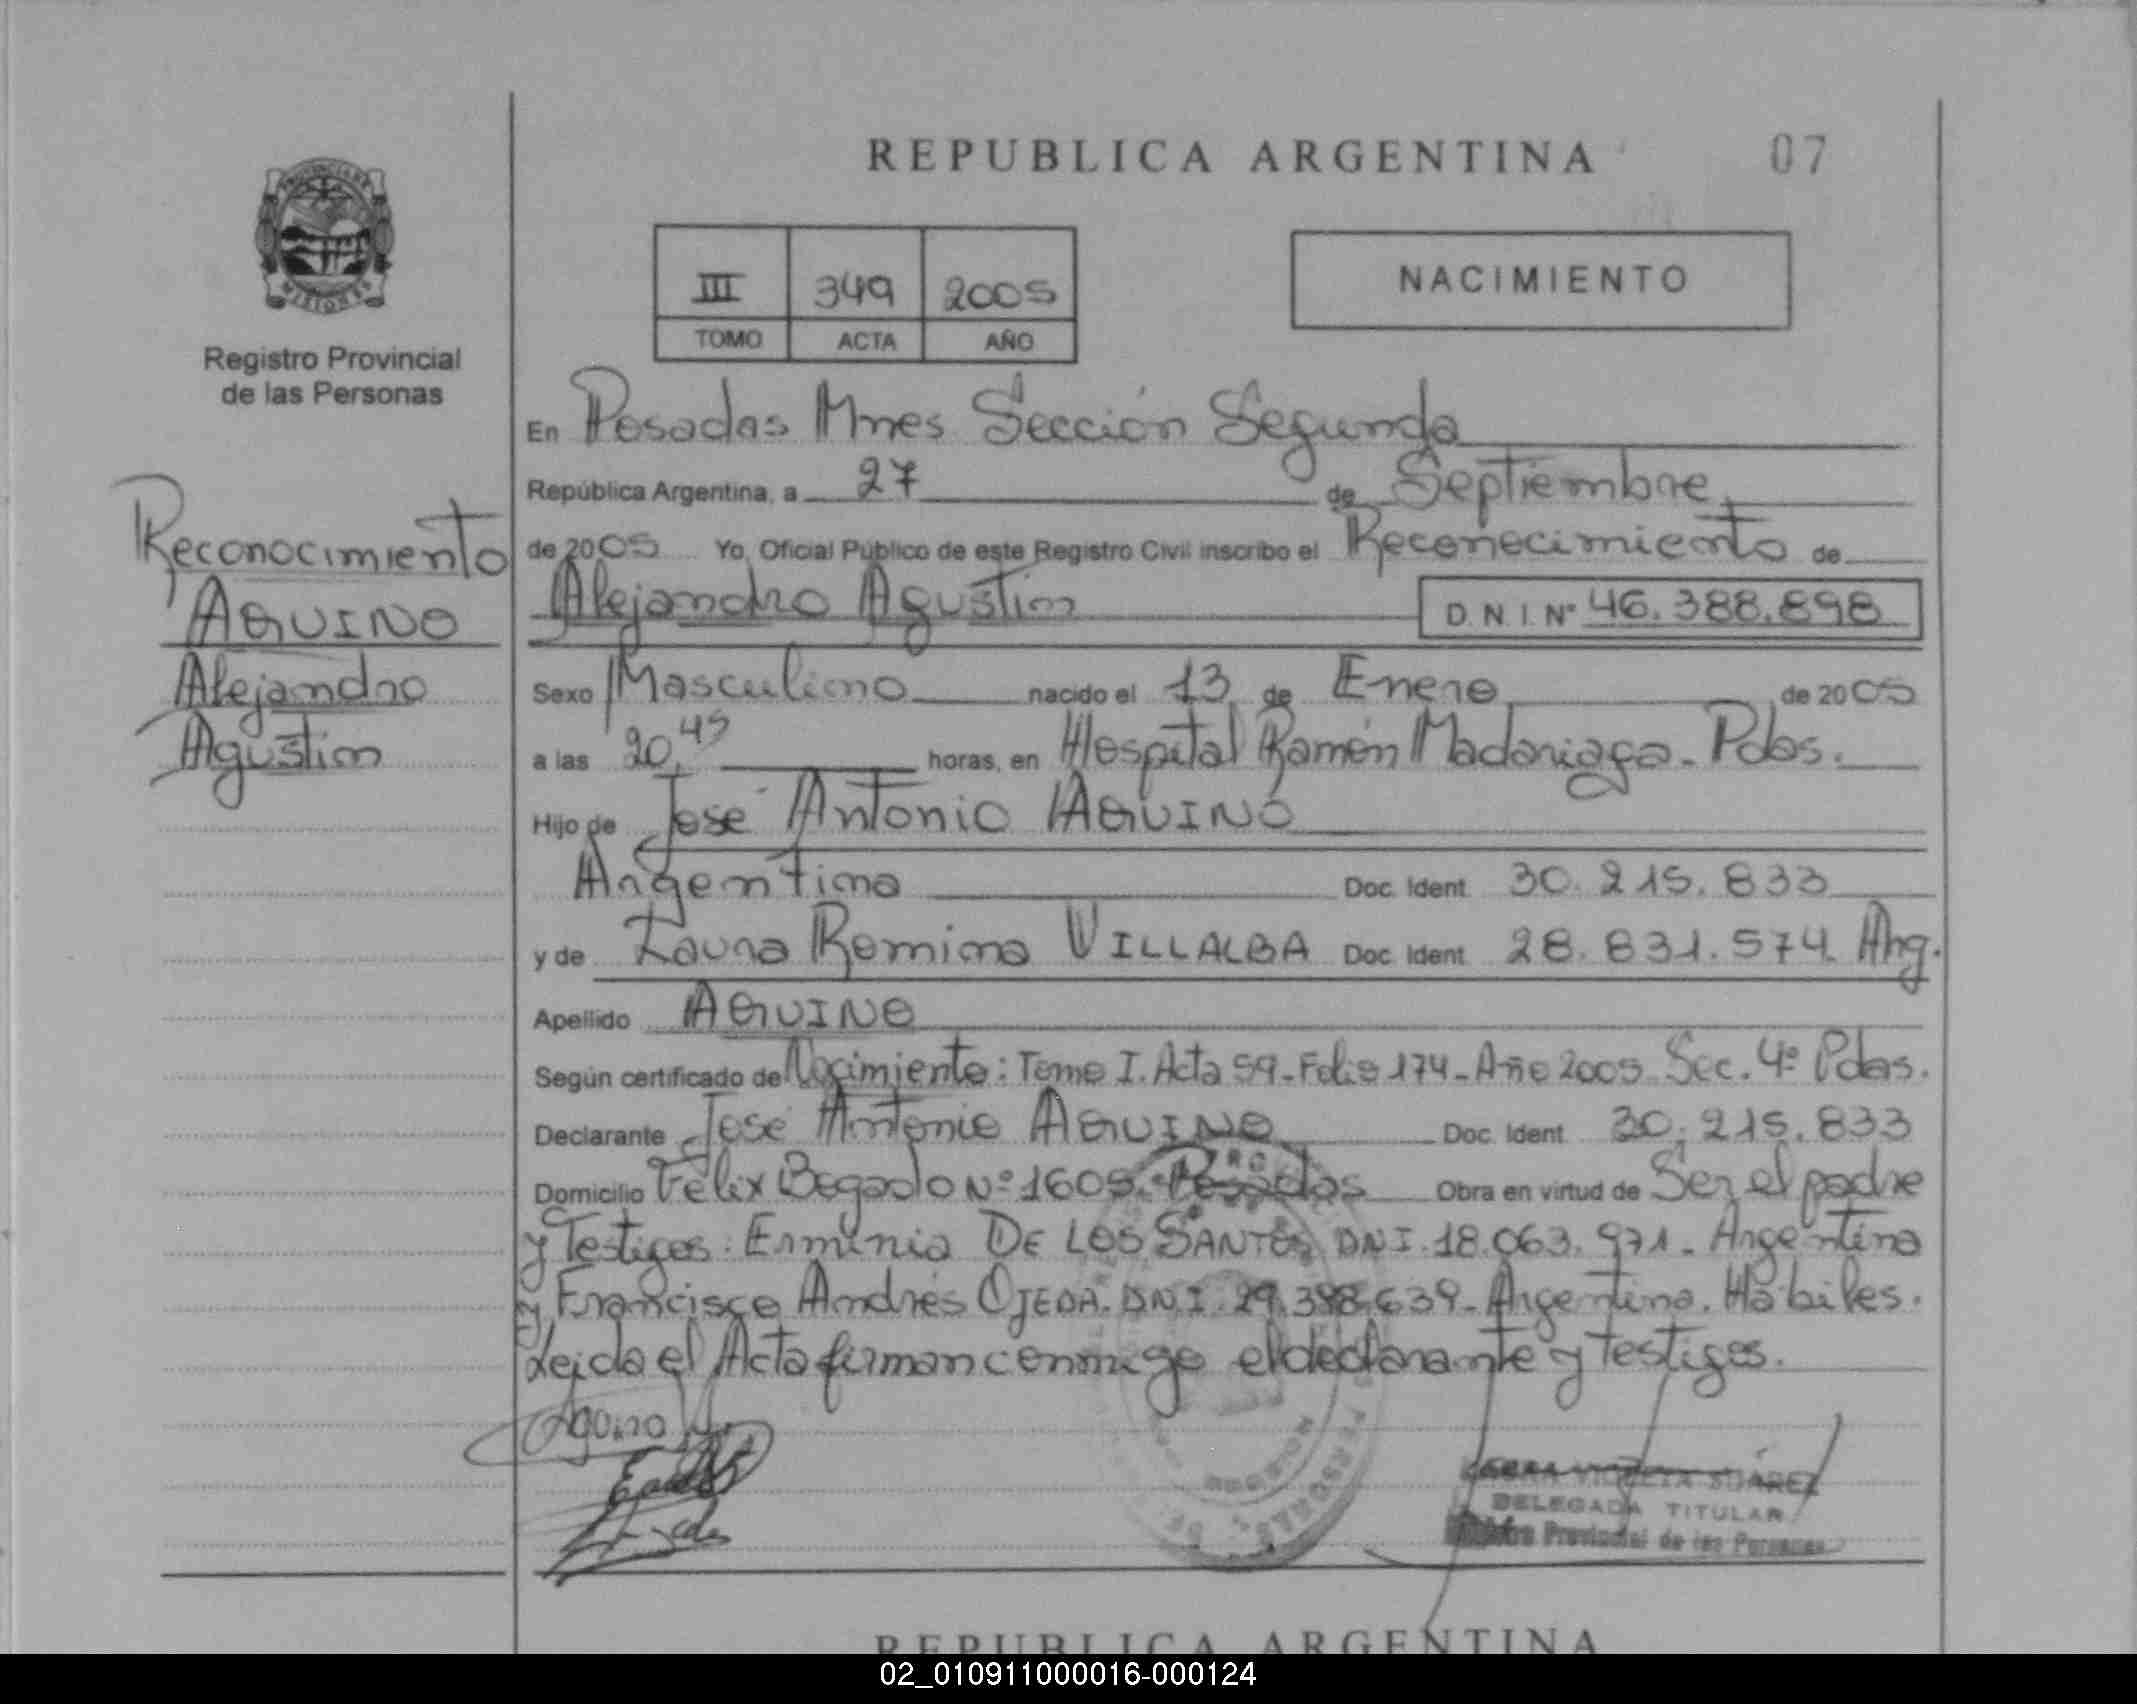 REPUBLICA ARGENTINA
07
PROVINCIA DE
MISIONES
Registro Provincial
de las Personas
III 349 2005
TOMO ACTA AÑO
NACIMIENTO
Reconocimiento
AQUINO
Alejandro
Agustin
En Posadas Mnes Sección Segunda
República Argentina, a 27 de Septiembre
de 2005 Yo, Oficial Público de este Registro Civil inscribo el Reconocimiento de
Alejandro Agustin D.N.I. Nº 46.388.898
Sexo Masculino nacido el 13 de Enero de 2005
a las 20,45 horas, en Hospital Ramón Madariaga - Pdas.
Hijo de José Antonio AQUINO
Argentino Doc. Ident. 30.215.833
y de Laura Romina VILLALBA Doc. Ident. 28.831.574. Arg.
Apellido AQUINO
Según certificado de Nacimiento: Tomo I. Acta 59 - Folio 174 - Año 2005 Sec. 4º Pdas.
Declarante José Antonio AQUINO Doc. Ident. 30.215.833
Domicilio Félix Bogado Nº 1605. Posadas Obra en virtud de Ser el padre
y Testigos: Erminia DE LOS SANTOS DNI. 18.063.971 - Argentina
y Francisco Andrés OJEDA. DNI. 29.398.639 - Argentino. Hábiles.
Leida el Acta firman conmigo el declarante y testigos.
Aquino
VIOLETA SUÁREZ
DELEGADA TITULAR
Provincial de las Personas
REPUBLICA ARGENTINA
02_010911000016-000124